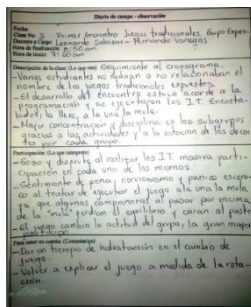 Diario de campo - observación
Fecha
Clase No. 3 Primer encuentro Juegos tradicionales Grupo Exper.
Docente a Cargo: Leonardo Salazar - Fernando Vanegas
Hora de finalización: 8:50 am
Hora de inicio: 7:00 am
Descripción de la clase: (Lo que veo) Seguimiento al cronograma.
-Varios estudiantes no sabían o no relacionaban el
nombre de los juegos tradicionales expuestos
-El desarrollo del encuentro estuvo acorde a la
programación y se ejecutaron los J.T. Encosta-
lados, la lleva, a la una la mula.
-Mayor concentración y disciplina en los subgrupos
gracias a las actividades y a la rotacion de los docen
te por cada grupo.
Participación: (Lo que interpreto)
-Gozo y disfrute al realizar los J.T. masiva parti-
cipación en cada uno de los mismos.
-Sentimiento de pena, nerviosismo y panico escéni-
co al tratar de ejecutar el juego a la una la mula
ya que algunos compañeros al pasar por encima
de la "mula" perdian el equilibrio y caian al pasto
el juego cambio la actitud del grupo, la gran mayor
participo
Para tener en cuenta: (Comentarios)
-Dar un tiempo de hidratación en el cambio de
juego.
-Volver a explicar el juego a medida de la rota-
ción.